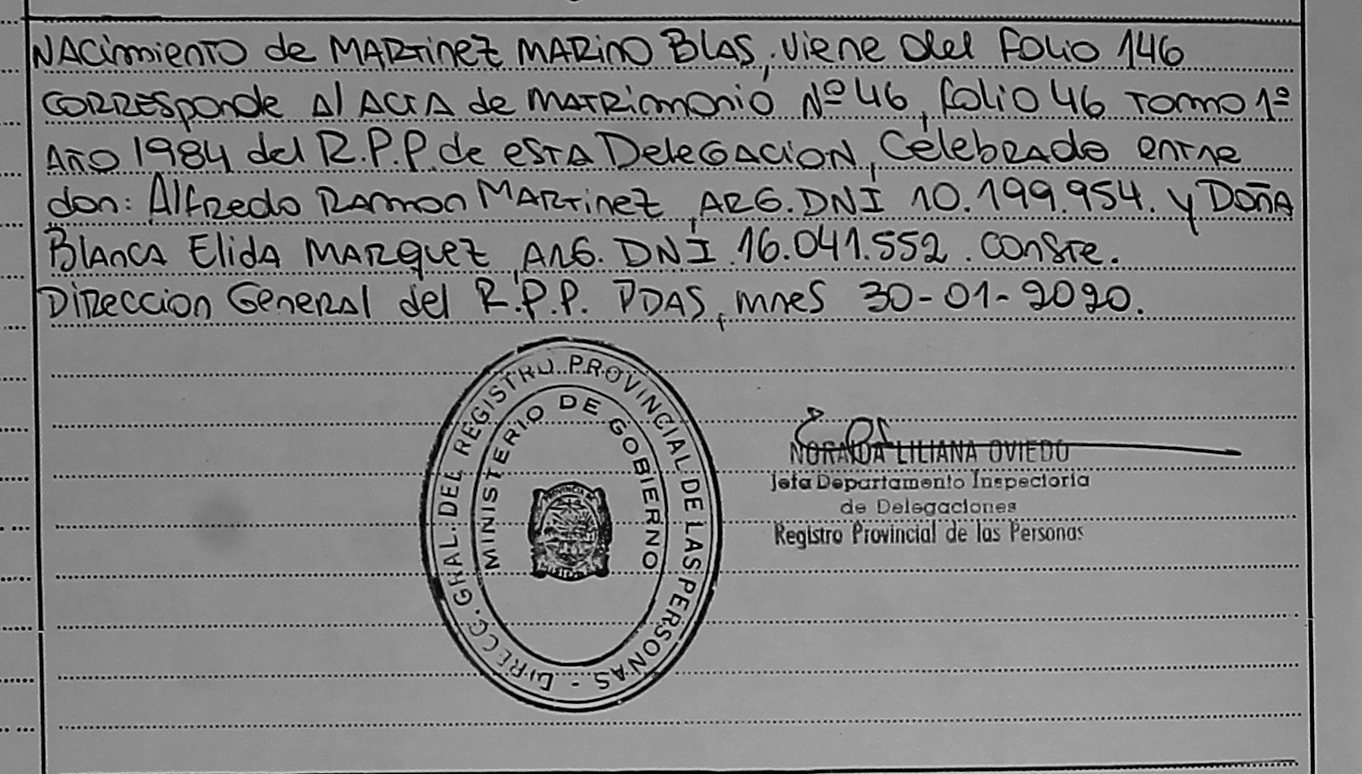 NACimiento de MARTinez MARINO BLAS, Viene del Folio 146
CORRESPonde Al ACTA de MATRimonio Nº 46, Folio 46 Tomo 1º
Año 1984 del R.P.P. de ESTA DeleGACION, Celebrado entre
don: Alfredo Ramon MARTinez, ARG. DNI 10.199.954. y DOÑA
Blanca Elida MARquez, ARG. DNI 16.041.552. Conste.
Direccion General del R.P.P. PDAS, mnes 30-01-2020.
DIRECC. GRAL. DEL REGISTRO PROVINCIAL DE LAS PERSONAS -
MINISTERIO DE GOBIERNO
NORAIDA LILIANA OVIEDO
Jefa Departamento Inspectoria
de Delegaciones
Registro Provincial de las Personas